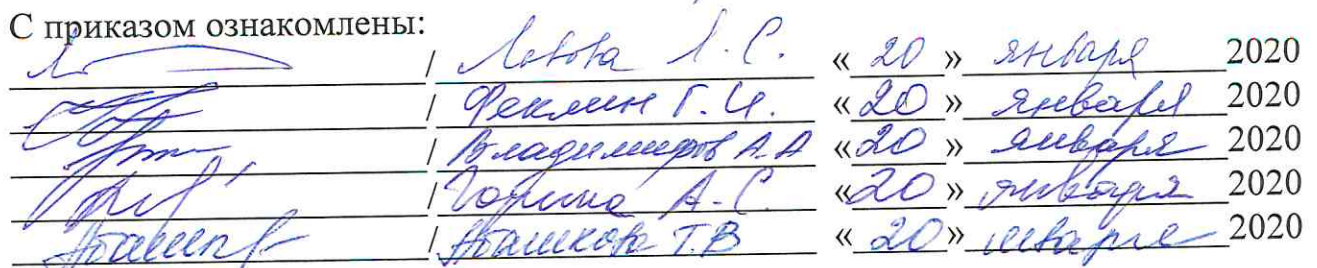 С приказом ознакомлены:
/ Львова Л.С. « 20 » января 2020
/ Феклин Г.И. « 20 » января 2020
/ Владимиров А.А « 20 » января 2020
/ Горина А.С. « 20 » января 2020
/ Абашкова Т.В « 20 » января 2020